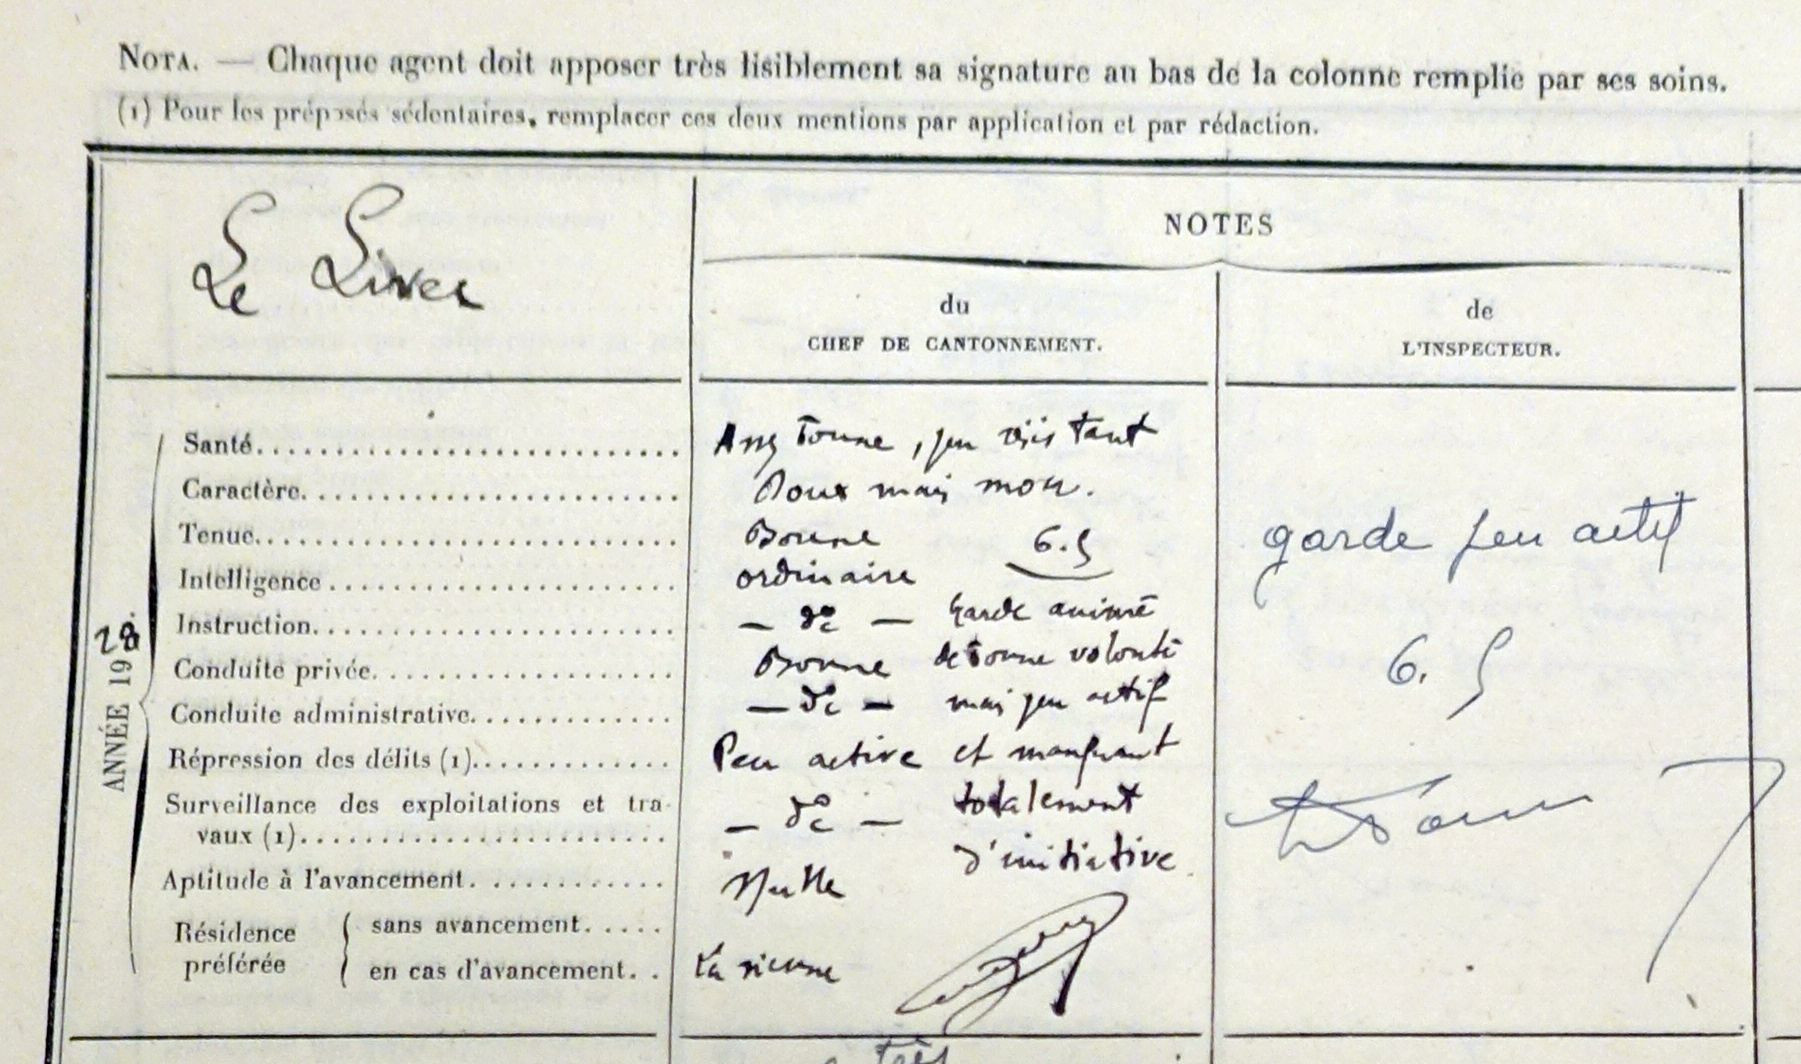 NOTA. — Chaque agent doit apposer très lisiblement sa signature au bas de la colonne remplie par ses soins.
(1) Pour les préposés sédentaires, remplacer ces deux mentions par application et par rédaction.
Le Liver
NOTES
du
CHEF DE CANTONNEMENT.
de
L'INSPECTEUR.
ANNÉE 1928.
Santé. Assez bonne, peu résistant
Caractère. Doux mais mou.
Tenue. Bonne 6.5
Intelligence ordinaire
Instruction. — do — Garde animé
Conduite privée. Bonne de bonne volonté
Conduite administrative. — do — mais peu actif
Répression des délits (1). Peu active et manquant
Surveillance des exploitations et tra-
vaux (1). — do — totalement
d'initiative
Aptitude à l'avancement. Nulle
Résidence préférée
sans avancement.
en cas d'avancement. La sienne
garde peu actif
6.5
très